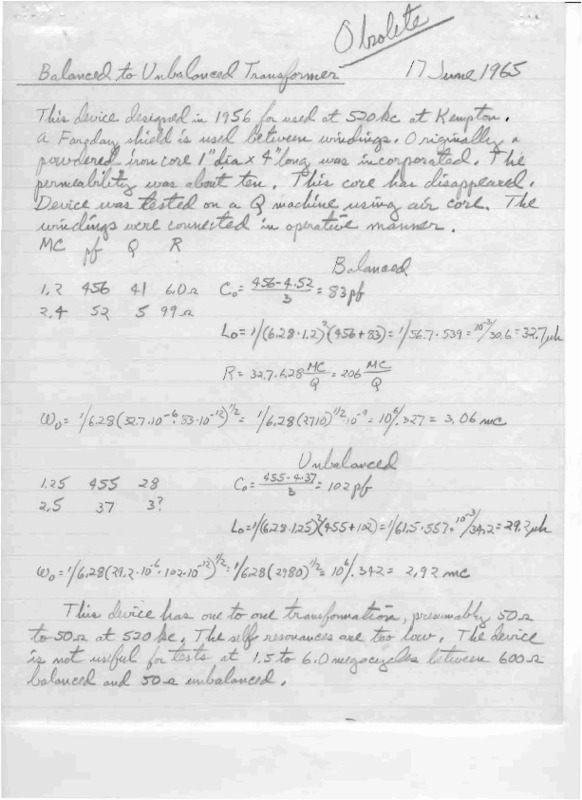 Obsolete
Balanced to Unbalanced Transformer 17 June 1965
This device designed in 1956 for used at 520 kc at Kempton.
A Faraday shield is used between windings. Originally a
powdered iron core 1" dia x 4" long was incorporated. The
permeability was about ten. This core has disappeared.
Device was tested on a Q machine using air core. The
windings were connected in operative manner.
MC pf Q R
Balanced
1.2 456 41 6.0Ω C₀ = (456-4·52)/3 = 83 pf
2.4 52 5 99Ω
L₀ = 1/(6.28·1.2)²(456+83) = 1/56.7·539 = 10⁻³/30.6 = 32.7 μh
R = 32.7·6.28 MC/Q = 206 MC/Q
ω₀ = 1/6.28(32.7·10⁻⁶·83·10⁻¹²)^1/2 = 1/6.28(2710)^1/2·10⁻⁹ = 10⁶/.327 = 3.06 mc
Unbalanced
1.25 455 28 C₀ = (455-4·37)/3 = 102 pf
2.5 37 3?
L₀ = 1/(6.28·1.25)²(455+102) = 1/61.5·557 = 10⁻³/34.2 = 29.2 μh
ω₀ = 1/6.28(29.2·10⁻⁶·102·10⁻¹²)^1/2 = 1/6.28(2980)^1/2 = 10⁶/.342 = 2.92 mc
This device has one to one transformation, presumably 50Ω
to 50Ω at 520 kc. The self resonances are too low. The device
is not useful for tests at 1.5 to 6.0 megacycles between 600Ω
balanced and 50Ω unbalanced.